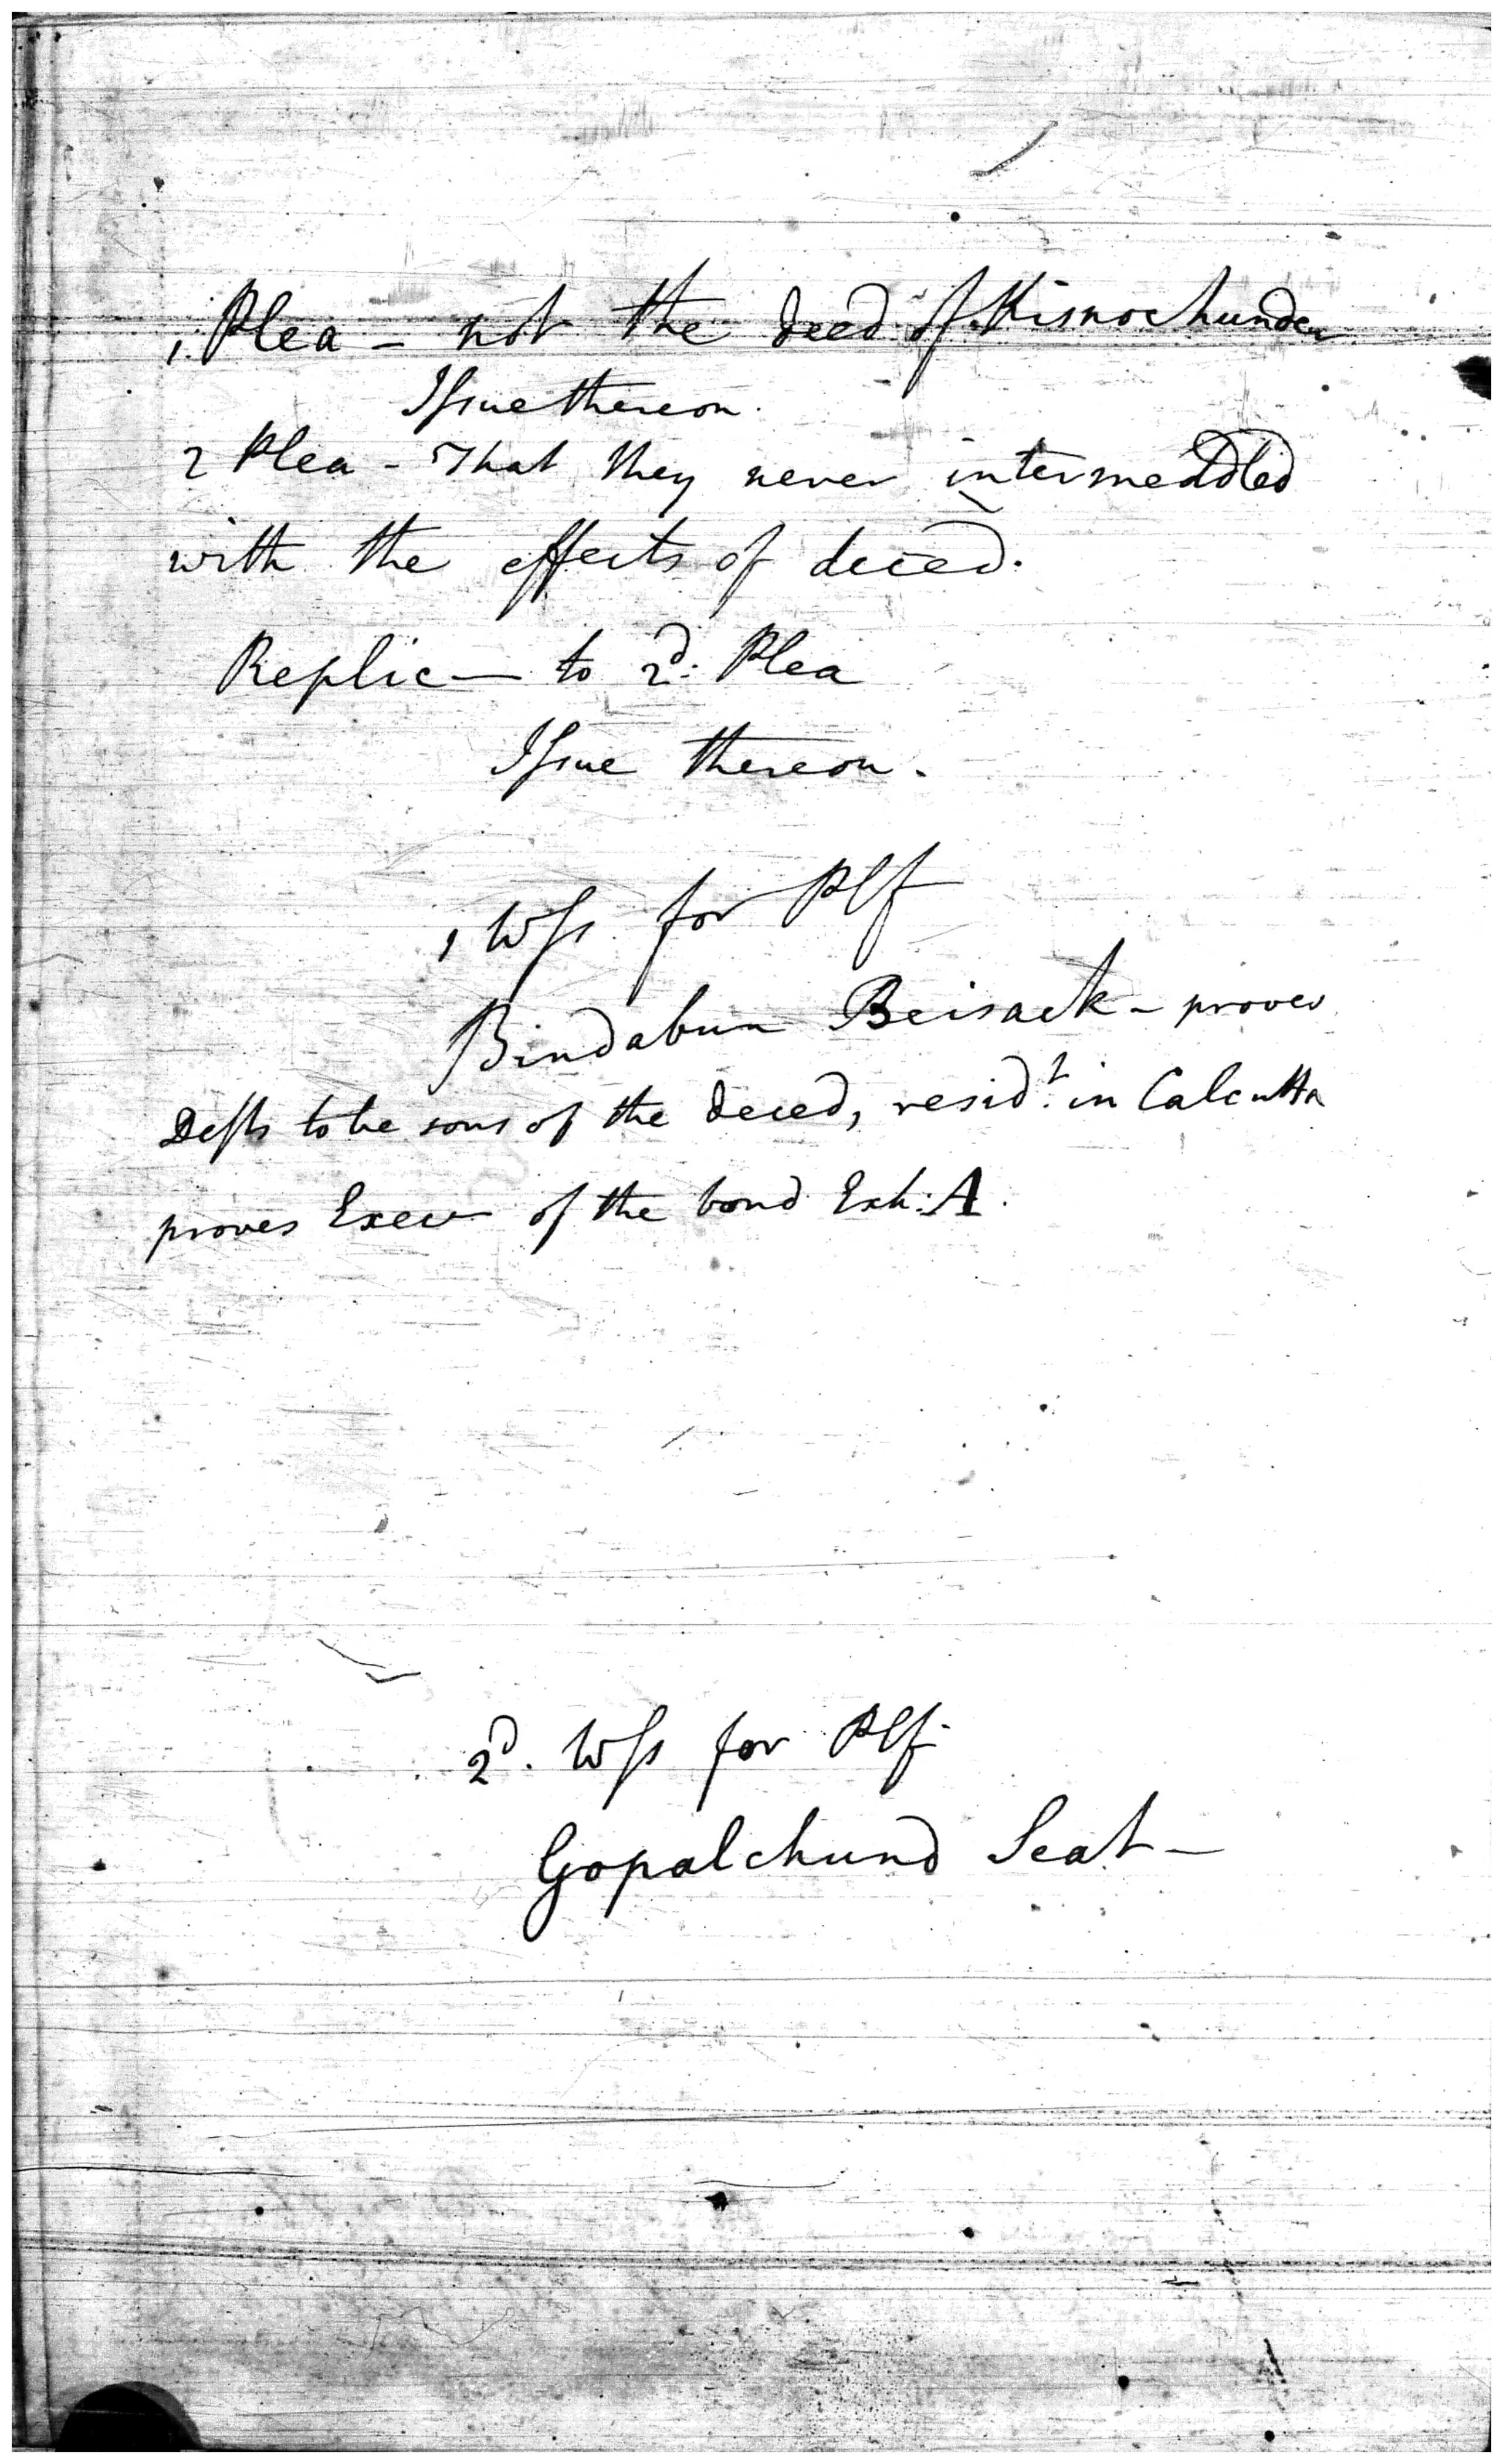 1 Plea - not the deed of Kisnochunder
Issue thereon.
2 Plea - That they never intermeddled
with the effects of deced.
Replic— to 2d. Plea
Issue thereon.
1 Wss for Plf
Bindabun Beisack - proves
Defts to be sons of the deced, residt. in Calcutta
proves Execu— of the bond Exh: A.
2d. Wss for Plf
Gopalchund Seat -